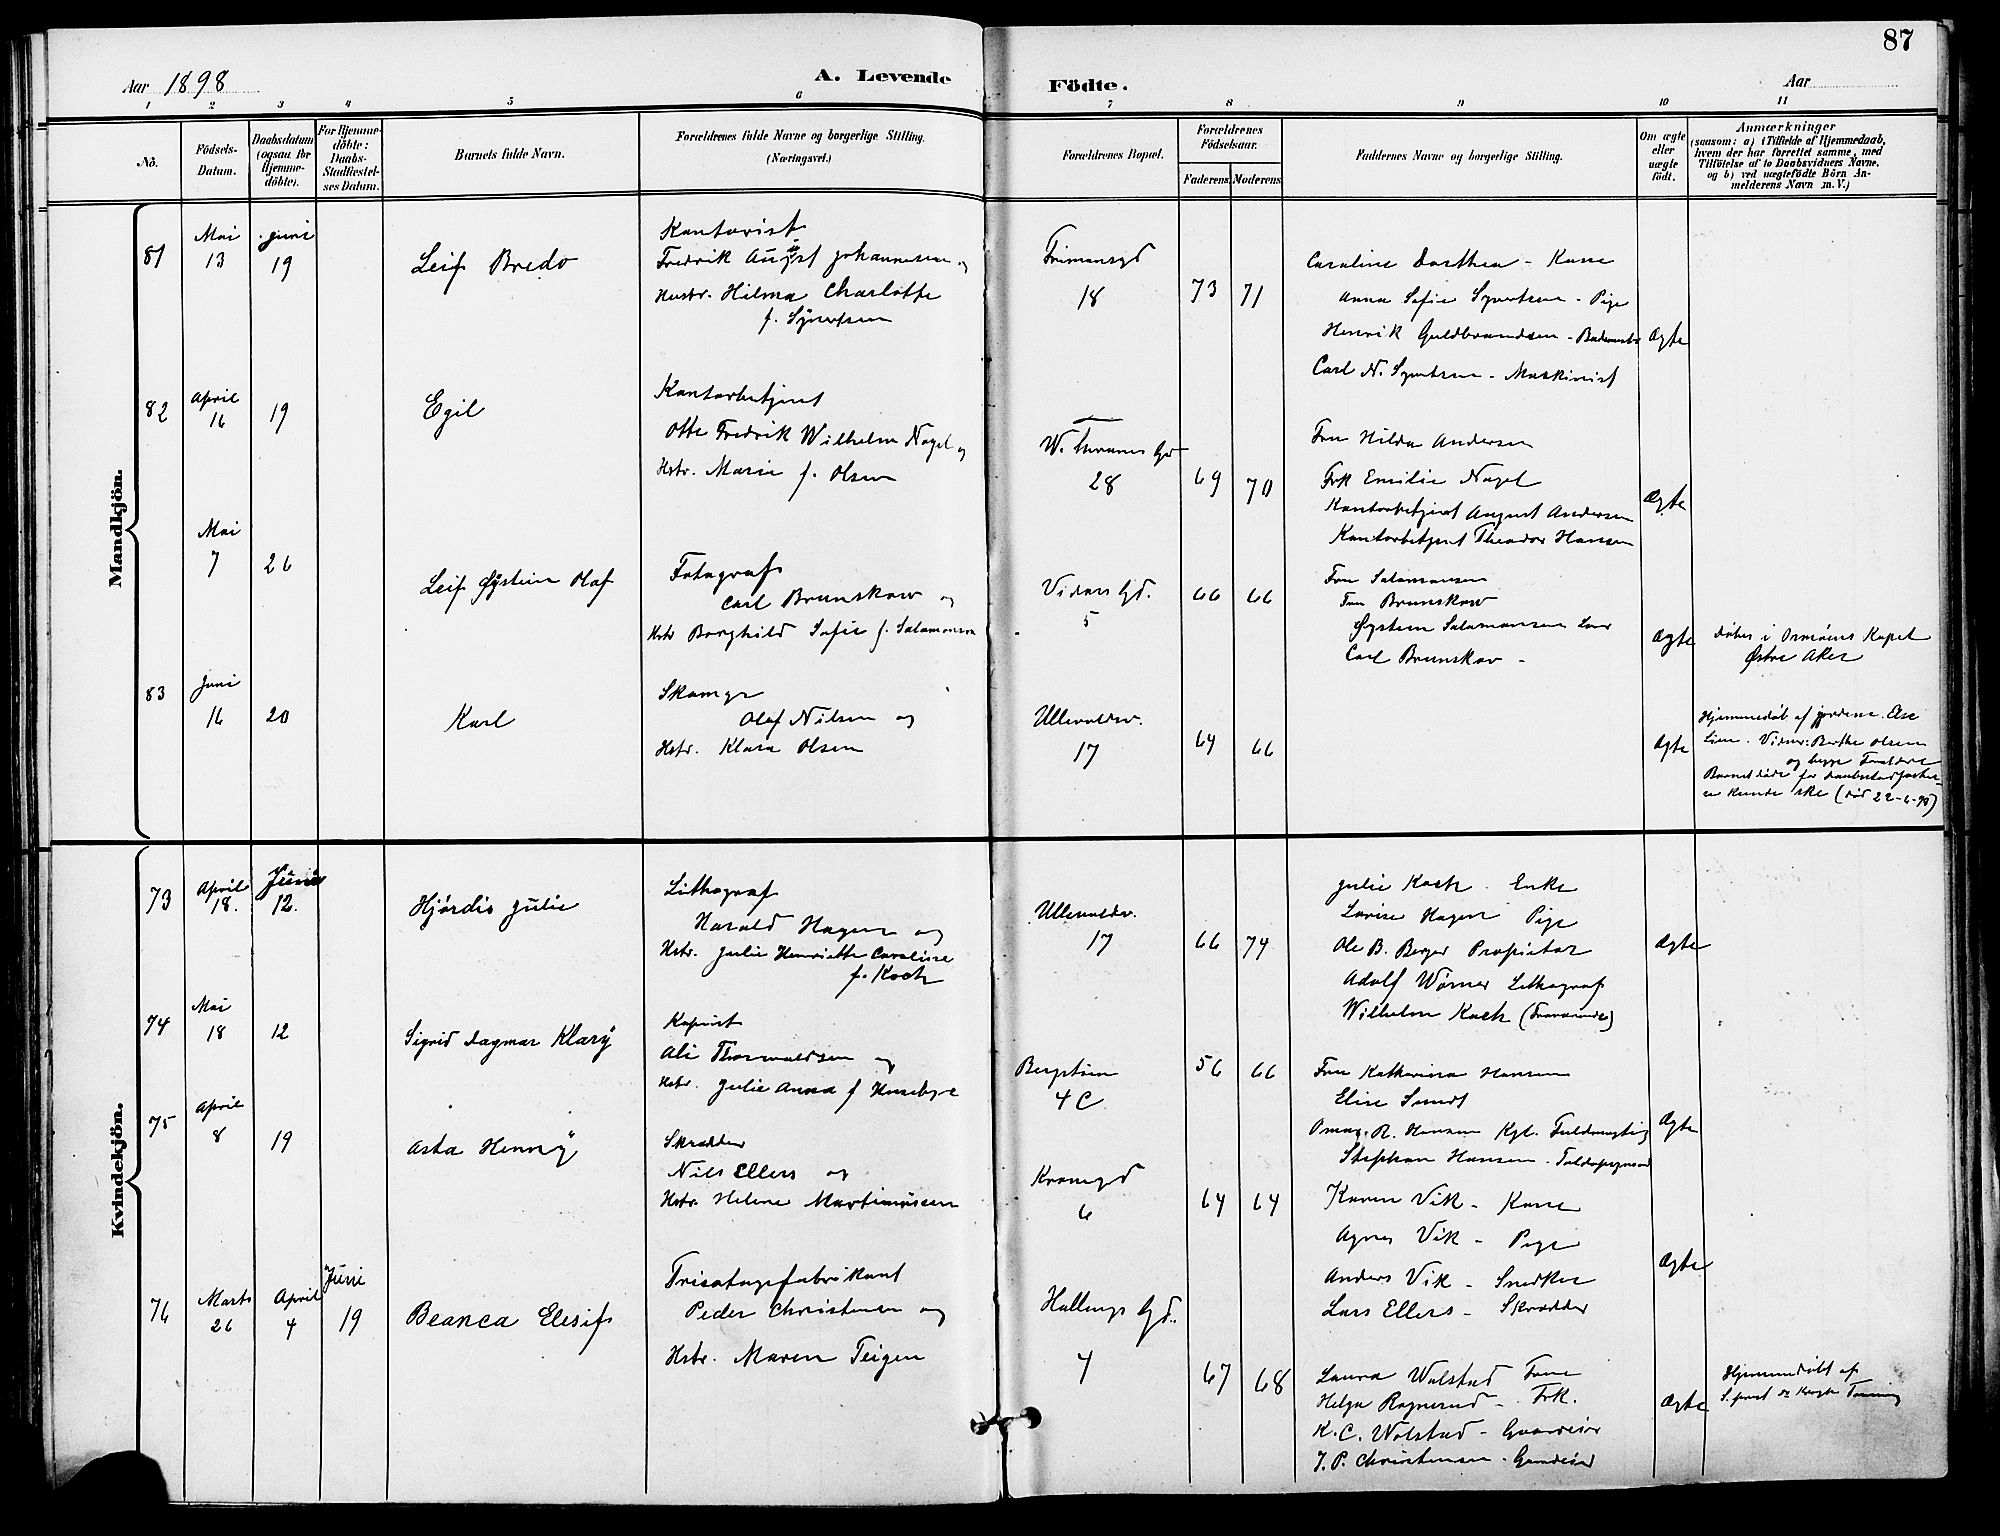 87
Aar 1898
A. Levende
Födte.
Aar
1 2 3 4 5 6 7 8 9 10 11
No.
Födsels-Datum.
Daabsdatum (ogsaa for Hjemme-döbte).
For Hjemme-döbte: Daabs-Stadfæstel-ses Datum.
Barnets fulde Navn.
Forældrenes fulde Navne og borgerlige Stilling.
(Næringsvei.)
Forældrenes Bopæl.
Forældrenes Födselsaar.
Faderens. Moderens.
Faddernes Navne og borgerlige Stilling.
Om ægte eller uægte födt.
Anmærkninger
(saasom: a) i Tilfælde af Hjemmedaab, hvem der har forrettet samme, med Tilföielse af to Daabsvidners Navne, og b) ved uægtefödte Börn An-melderens Navn m. V.)
Mandkjön.
81
Mai 13
Juni 19
Leif Bredo
Kontorist
Fredrik August Johannesen og
Hustr. Hilma Charlotte
f. Syvertsen
18
73 71
Caroline Dorthea - Kone
Anna Sofie Syvertsen - Pige
Henrik Guldbrandsen -
Carl N. Syvertsen - Maskinist
Ægte
82
April 16
19
Egil
Kontorbetjent
Otto Fredrik Wilhelm Nagel og
Hstr. Marie f. Olsen
W. Thranes Gd
28
69 70
Fru Hilda Andersen
Frk Emilie Nagel
Kontorbetjent August Andersen
Kontorbetjent Theodor Hansen
Ægte
Mai 7
26
Leif Øystein Olaf
Fotograf
Carl Brunskow og
Hstr Borghild Sofie f. Salamonsen
Vidars Gd.
5
66 66
Fru Salamonsen
Fru Brunskow
Øystein Salamonsen
Carl Brunskow -
Ægte
døbt i Ormøens Kapel
Østre Aker
83
Juni 16
20
Karl
Skomgr
Olaf Nilsen og
Hstr. Klara Olsen
Ullevoldsv.
17
64 66
Ægte
Hjemmedøb af jordem. Else
Lien. Vidner: Berthe Olsen
og begge Forældre
Barnet døde før daabsstadfæstel-
se kunde ske (død 22-6-98)
Kvindekjön.
73
April 18.
Juni 12.
Hjørdis Julie
Lithograf
Harald Hagen og
Hstr. Julie Henriette Caroline
f. Koch
Ullevoldsv.
17
66 74
Julie Koch - Enke
Lovise Hagen Pige
Ole B. Berger Proprietær
Adolf Wørner Lithograf
Wilhelm Koch
Ægte
74
Mai 18
12
Sigrid Dagmar Klary
Kopiist
Ali Thorvaldsen og
Hstr. Julie Anna f Husebye
Bergstien
4 C
56 66
Fru Katharina Hansen
Elise Smidt
R. Hansen Kgl. Fuldmægtig
Stephan Hansen -
Ægte
75
April 8
19
Asta Henny
Skrædder
Nils Ellers og
Hstr. Helene Martinussen
Kronsgd
6
64 64
Karen Vik - Kone
Agnes Vik - Pige
Anders Vik - Snedker
Lars Ellers - Skrædder
Ægte
76
Marts 26
April 4
Juni 19
Beanca Elesif
Tricotagefabrikant
Peder Christensen og
Hstr. Maren Teigen
Hallings Gd.
4
67 68
Laura Wolstad Frue
Helga Rognerud - Frk.
K. C. Wolstad - Gaardeier
J. P. Christensen - Gaardeier
Ægte
Hjemmedøbt af